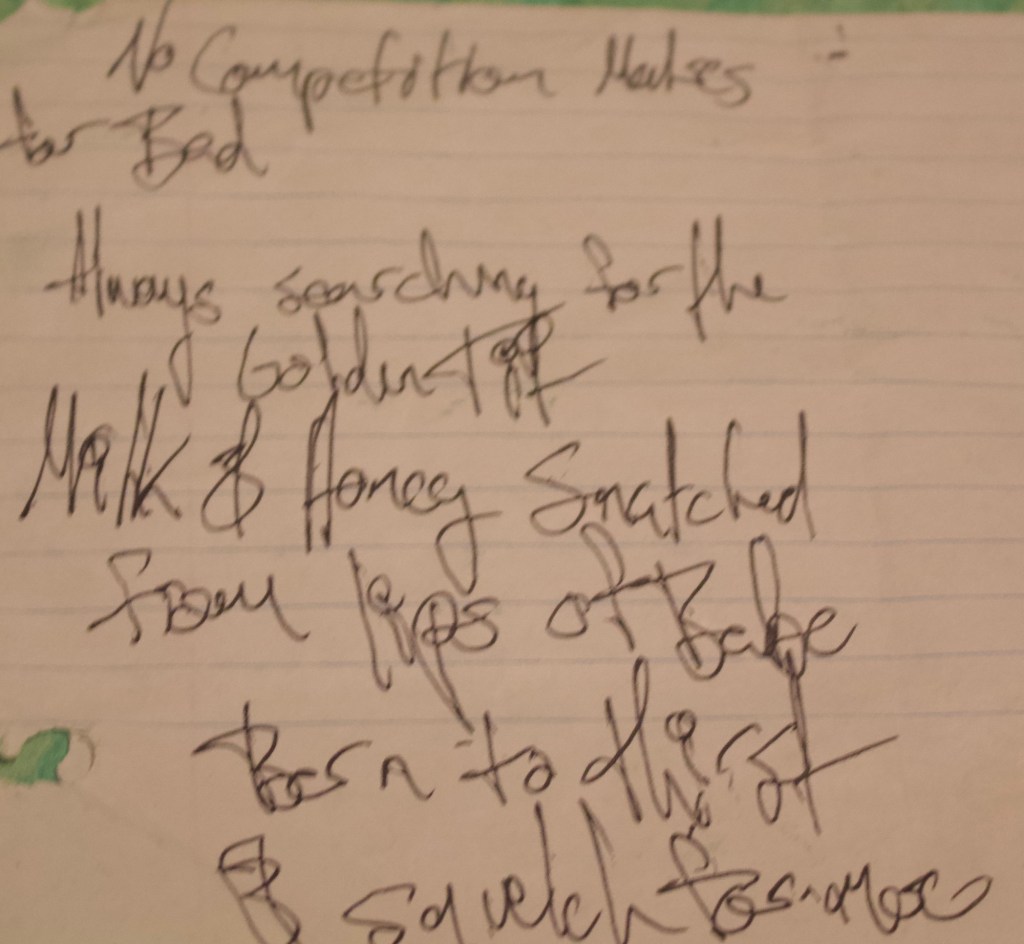 No Competition Makes :-
for Bad
Always searching for the
Golden tit
Milk & Honey Snatched
from lips of Babe
Born to thirst
& squelch for more